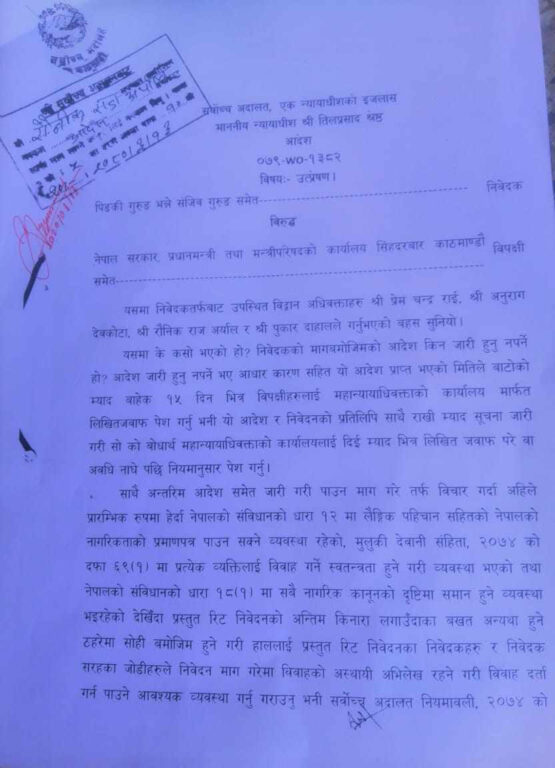 सर्वोच्च अदालत, एक न्यायाधीशको इजलास
माननीय न्यायाधीश श्री तिलप्रसाद श्रेष्ठ
आदेश
०७९-WO-१३८२
विषयः- उत्प्रेषण।
पिङकी गुरुङ भन्ने संजिव गुरुङ समेत निवेदक
विरुद्ध
नेपाल सरकार, प्रधानमन्त्री तथा मन्त्रीपरिषदको कार्यालय सिंहदरबार काठमाण्डौ विपक्षी
समेत
यसमा निवेदकतर्फबाट उपस्थित विद्वान अधिवक्ताहरु श्री प्रेम चन्द्र राई, श्री अनुराग
देवकोटा, श्री रौनिक राज अर्याल र श्री पुकार दाहालले गर्नुभएको बहस सुनियो।
यसमा के कसो भएको हो? निवेदकको मागबमोजिमको आदेश किन जारी हुनु नपर्ने
हो? आदेश जारी हुनु नपर्ने भए आधार कारण सहित यो आदेश प्राप्त भएको मितिले बाटोको
म्याद बाहेक १५ दिन भित्र विपक्षीहरुलाई महान्यायाधिवक्ताको कार्यालय मार्फत
लिखितजवाफ पेश गर्नु भनी यो आदेश र निवेदनको प्रतिलिपि साथै राखी म्याद सूचना जारी
गरी सो को बोधार्थ महान्यायाधिवक्ताको कार्यालयलाई दिई म्याद भित्र लिखित जवाफ परे वा
अवधि नाघे पछि नियमानुसार पेश गर्नु।
साथै अन्तरिम आदेश समेत जारी गरी पाउन माग गरे तर्फ विचार गर्दा अहिले
प्रारम्भिक रुपमा हेर्दा नेपालको संविधानको धारा १२ मा लैङ्गिक पहिचान सहितको नेपालको
नागरिकताको प्रमाणपत्र पाउन सक्ने व्यवस्था रहेको, मुलुकी देवानी संहिता, २०७४ को
दफा ६९(१) मा प्रत्येक व्यक्तिलाई विवाह गर्ने स्वतन्त्रता हुने गरी व्यवस्था भएको तथा
नेपालको संविधानको धारा १८(१) मा सबै नागरिक कानूनको दृष्टिमा समान हुने व्यवस्था
भइरहेको देखिँदा प्रस्तुत रिट निवेदनको अन्तिम किनारा लगाउँदाका बखत अन्यथा हुने
ठहरेमा सोही बमोजिम हुने गरी हाललाई प्रस्तुत रिट निवेदनका निवेदकहरु र निवेदक
सरहका जोडीहरुले निवेदन माग गरेमा विवाहको अस्थायी अभिलेख रहने गरी विवाह दर्ता
गर्न पाउने आवश्यक व्यवस्था गर्नु गराउनु भनी सर्वोच्च अदालत नियमावली, २०७४ को